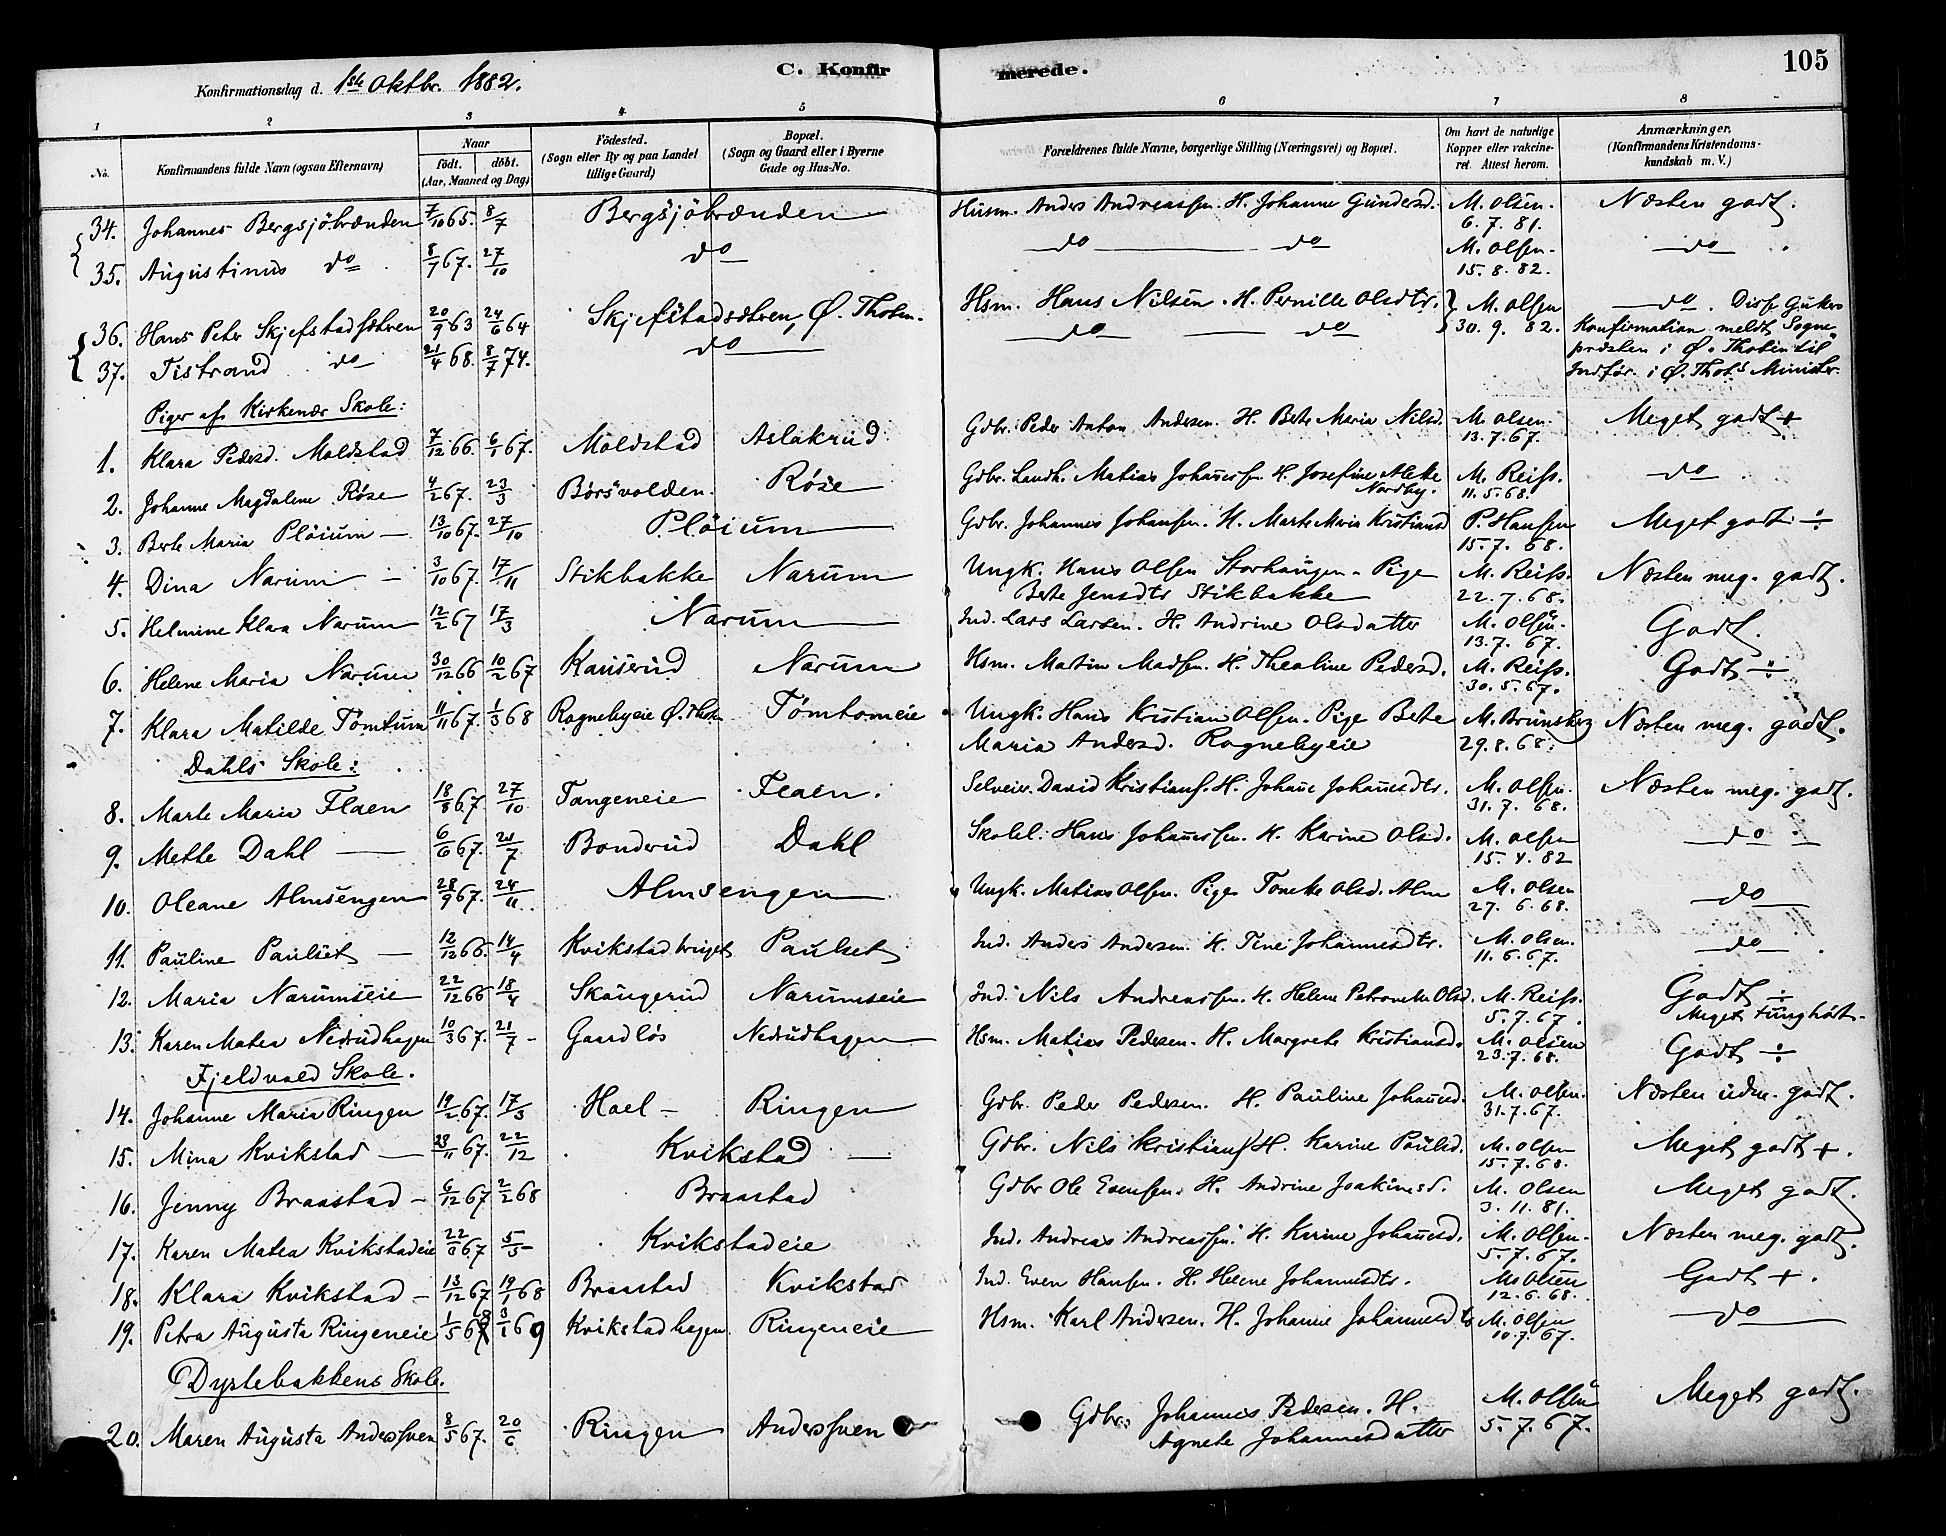 105
Konfirmationsdag d. 1ste Oktbr. 1882.
C. Konfirmerede.
1 2 3 4 5 6 7 8
No. Konfirmandens fulde Navn (ogsaa Efternavn) Naar födt. döbt. (Aar, Maaned og Dag) Födested. (Sogn eller By og paa Landet tillige Gaard) Bopæl. (Sogn og Gaard eller i Byerne Gade og Hus-No. Forældrenes fulde Navne, borgerlige Stilling (Næringsvei) og Bopæl. Om havt de naturlige Kopper eller vakcineret. Attest herom. Anmærkninger. (Konfirmandens Kristendomskundskab m. V.)
34. Johannes Bergsjöbrænden 7/10 65. 8/7 Bergsjöbrænden Husm. Anders Andreassen. H. Johanne Gundersd. M. Olsen. 6.7.81. Næsten godt.
35. Augustinus do 8/9 67. 27/10 do do do M. Olsen. 15.8.82. do
36. Hans Peter Skjefstadsætren 20/9 63 24/6 64 Skjefstadsætren, Ø. Thoten. Hsm. Hans Nilsen. H. Pernille Olsdtr. M. Olsen 30.9.82. do. Disse Gutters Konfirmation meldt Sognepræsten i Ø. Thoten til Indför. i Ø. Thots Minister.
37. Tistrand do 21/4 68. 8/7 74. do do do
Piger af Kirkenær Skole:
1. Klara Pedersd. Moldstad 7/12 66. 6/1 67. Moldstad Aslakrud Gdbr. Peder Anton Andersen. H. Berte Maria Nilsd. M. Olsen. 13.7.67. Meget godt +
2. Johanne Magdalene Röse 4/2 67. 23/3 Börsvolden. Röse Gdbr. Landh. Matias Johannessen H. Josefine Alette Nordby. M. Reiss. 11.5.68. do
3. Berte Maria Plöium 13/10 67. 27/10 Plöium Gdbr. Johannes Johansen. H. Marte Maria Kristiansd P. Hansen 15.7.68. Meget godt ÷
4. Dina Narum 3/10 67. 17/11 Stikbakke Narum Ungk. Hans Olsen Storhaugen. Pige Berte Jensdtr Stikbakke M. Reiss. 22.7.68. Næsten meg. godt.
5. Helmine Klara Narum 12/2 67 17/3 Narum Ind. Lars Larsen. H. Andrine Olsdatter M. Olsen. 13.7.67. Godt.
6. Helene Maria Narum 30/12 66 10/2 67 Kauserud Narum Hsm. Martin Madsen. H. Thealine Pedersd. M. Reiss. 30.5.67. Godt ÷
7. Klara Matilde Tömtum 11/11 67. 1/3 68 Rognebyeie Ø. Thoten Tömtomeie Ungk. Hans Kristian Olsen. Pige Berte Maria Andersd. Rognebyeie M. Brunsberg 29.8.68. Næsten meg. godt.
Dahls Skole:
8. Marte Maria Flaen 18/8 67. 27/10 Tangeneie Flaen. Selveier. David Kristians. H. Johanne Johannesdtr. M. Olsen. 31.7.68. Næsten meg. godt.
9. Mette Dahl 6/6 67. 21/7 Bonderud Dahl Skolel. Hans Johannessen. H. Karine Olsd. M. Olsen 15.4.82 do
10. Oleane Almsengen 28/9 67. 24/11 Almsengen Ungk. Matias Olsen. Pige Toneta Olsd. Alm M. Olsen 27.6.68. do
11. Pauline Paulset 12/12 66. 14/4 Kvikstadbruget Paulset Ind. Anders Andersen. H. Tine Johannesdtr. M. Olsen. 11.6.67. do
12. Maria Narumseie 22/12 66 18/4 Skaugerud Narumseie Ind. Nils Andreassen. H. Helene Petronette Olsd. M. Reiss. 5.7.67. Godt ÷ Meget tunghört.
13. Karen Matea Nedrudhagen 10/3 67. 21/7 Gaardlös Nedrudhagen Hsm. Matias Pedersen. H. Margrete Kristiansd. M. Olsen 23.7.68. Godt ÷
Fjeldvold Skole.
14. Johanne Maria Ringen 19/2 67. 17/3 Hoel Ringen Gdbr. Peder Pedersen. H. Pauline Johannesd. M. Olsen. 31.7.67. Næsten udm. godt.
15. Mina Kvikstad 23/11 67. 22/12 Kvikstad Gdbr. Nils Kristians H. Karine Paulsd. M. Olsen 15.7.68. Meget godt +.
16. Jenny Braastad 6/12 67 2/2 68 Braastad Gdbr Ole Evensen. H. Andrine Joakimsd. M. Olsen 3.11.81. Meget godt.
17. Karen Matea Kvikstadeie 22/2 67 5/5 Kvikstadeie Ind. Andreas Andreassen. H. Karine Johannesd. M. Olsen. 5.7.67. Næsten meg. godt.
18. Klara Kvikstad 13/12 67 19/1 68 Braastad Kvikstad Ind. Even Hansen. H. Helene Johannesdtr. M. Olsen 12.6.68. Godt +.
19. Petra Augusta Ringeneie 1/5 68 3/1 69 Kvikstadhagen Ringeneie Hsm. Karl Andersen. H. Johanne Johannesdtr M. Olsen 10.7.67. do
Dystebakkens Skole.
20. Maren Augusta Anderssven 8/5 67. 20/6 Ringen Anderssven Gdbr. Johannes Pedersen. H. Agnete Johannesdatter M. Olsen 5.7.67. Meget godt.